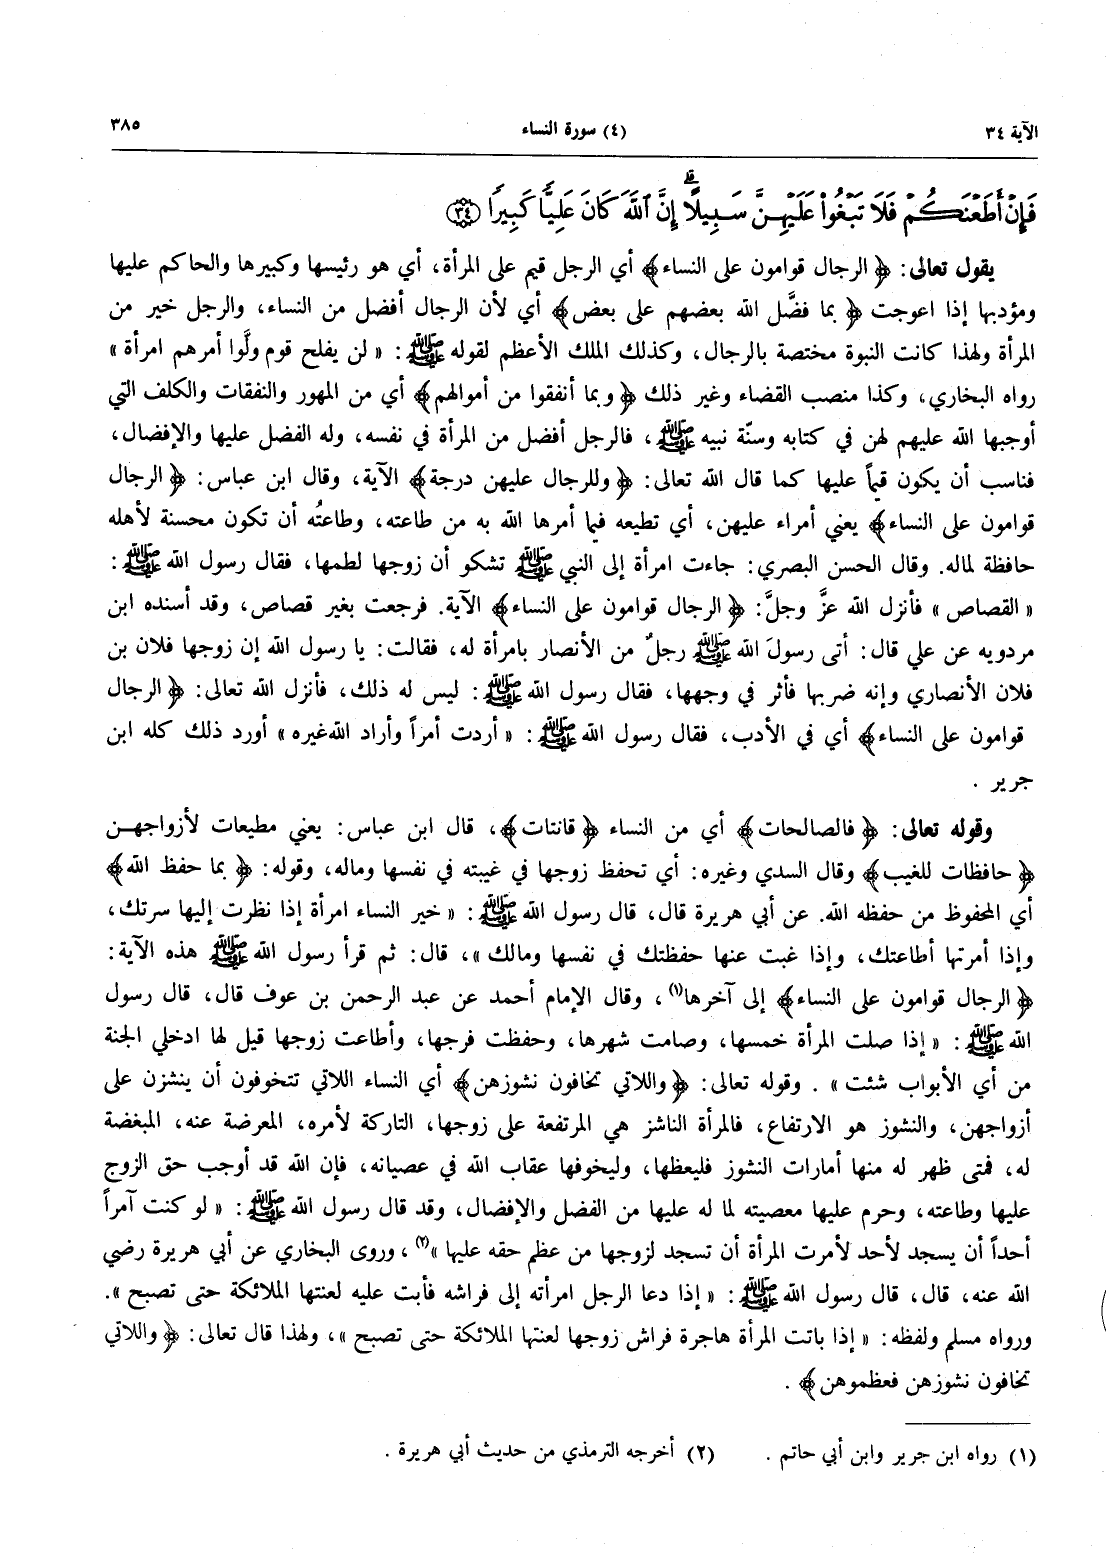 الآية ٣٤
(٤) سورة النساء
٣٨٥
فَإِنْ أَطَعْنَكُمْ فَلَا تَبْغُوا۟ عَلَيْهِنَّ سَبِيلًا ۗ إِنَّ ٱللَّهَ كَانَ عَلِيًّا كَبِيرًا ﴿٣٤﴾
يقول تعالى: ﴿الرجال قوامون على النساء﴾ أي الرجل قيم على المرأة، أي هو رئيسها وكبيرها والحاكم عليها
ومؤدبها إذا اعوجت ﴿بما فضَّل الله بعضهم على بعض﴾ أي لأن الرجال أفضل من النساء، والرجل خير من
المرأة ولهذا كانت النبوة مختصة بالرجال، وكذلك الملك الأعظم لقوله ﷺ: « لن يفلح قوم ولَّوا أمرهم امرأة »
رواه البخاري، وكذا منصب القضاء وغير ذلك ﴿وبما أنفقوا من أموالهم﴾ أي من المهور والنفقات والكلف التي
أوجبها الله عليهم لهن في كتابه وسنّة نبيه ﷺ، فالرجل أفضل من المرأة في نفسه، وله الفضل عليها والإفضال،
فناسب أن يكون قيماً عليها كما قال الله تعالى: ﴿وللرجال عليهن درجة﴾ الآية، وقال ابن عباس: ﴿الرجال
قوامون على النساء﴾ يعني أمراء عليهن، أي تطيعه فيما أمرها الله به من طاعته، وطاعتُه أن تكون محسنة لأهله
حافظة لماله. وقال الحسن البصري: جاءت امرأة إلى النبي ﷺ تشكو أن زوجها لطمها، فقال رسول الله ﷺ:
« القصاص » فأنزل الله عزَّ وجلَّ: ﴿الرجال قوامون على النساء﴾ الآية. فرجعت بغير قصاص، وقد أسنده ابن
مردويه عن علي قال: أتى رسولَ الله ﷺ رجلٌ من الأنصار بامرأة له، فقالت: يا رسول الله إن زوجها فلان بن
فلان الأنصاري وإنه ضربها فأثر في وجهها، فقال رسول الله ﷺ: ليس له ذلك، فأنزل الله تعالى: ﴿الرجال
قوامون على النساء﴾ أي في الأدب، فقال رسول الله ﷺ: « أردت أمراً وأراد الله غيره » أورد ذلك كله ابن
جرير .
وقوله تعالى: ﴿فالصالحات﴾ أي من النساء ﴿قانتات﴾، قال ابن عباس: يعني مطيعات لأزواجهن
﴿حافظات للغيب﴾ وقال السدي وغيره: أي تحفظ زوجها في غيبته في نفسها وماله، وقوله: ﴿بما حفظ الله﴾
أي المحفوظ من حفظه الله. عن أبي هريرة قال، قال رسول الله ﷺ: « خير النساء امرأة إذا نظرت إليها سرتك،
وإذا أمرتها أطاعتك، وإذا غبت عنها حفظتك في نفسها ومالك »، قال: ثم قرأ رسول الله ﷺ هذه الآية:
﴿الرجال قوامون على النساء﴾ إلى آخرها(١)، وقال الإمام أحمد عن عبد الرحمن بن عوف قال، قال رسول
الله ﷺ: « إذا صلت المرأة خمسها، وصامت شهرها، وحفظت فرجها، وأطاعت زوجها قيل لها ادخلي الجنة
من أي الأبواب شئت » . وقوله تعالى: ﴿واللاتي تخافون نشوزهن﴾ أي النساء اللاتي تتخوفون أن ينشزن على
أزواجهن، والنشوز هو الارتفاع، فالمرأة الناشز هي المرتفعة على زوجها، التاركة لأمره، المعرضة عنه، المبغضة
له، فمتى ظهر له منها أمارات النشوز فليعظها، وليخوفها عقاب الله في عصيانه، فإن الله قد أوجب حق الزوج
عليها وطاعته، وحرم عليها معصيته لما له عليها من الفضل والإفضال، وقد قال رسول الله ﷺ: « لو كنت آمراً
أحداً أن يسجد لأحد لأمرت المرأة أن تسجد لزوجها من عظم حقه عليها »(٢)، وروى البخاري عن أبي هريرة رضي
الله عنه، قال، قال رسول الله ﷺ: « إذا دعا الرجل امرأته إلى فراشه فأبت عليه لعنتها الملائكة حتى تصبح ».
ورواه مسلم ولفظه: « إذا باتت المرأة هاجرة فراش زوجها لعنتها الملائكة حتى تصبح »، ولهذا قال تعالى: ﴿واللاتي
تخافون نشوزهن فعظموهن﴾ .
(١) رواه ابن جرير وابن أبي حاتم .
(٢) أخرجه الترمذي من حديث أبي هريرة .